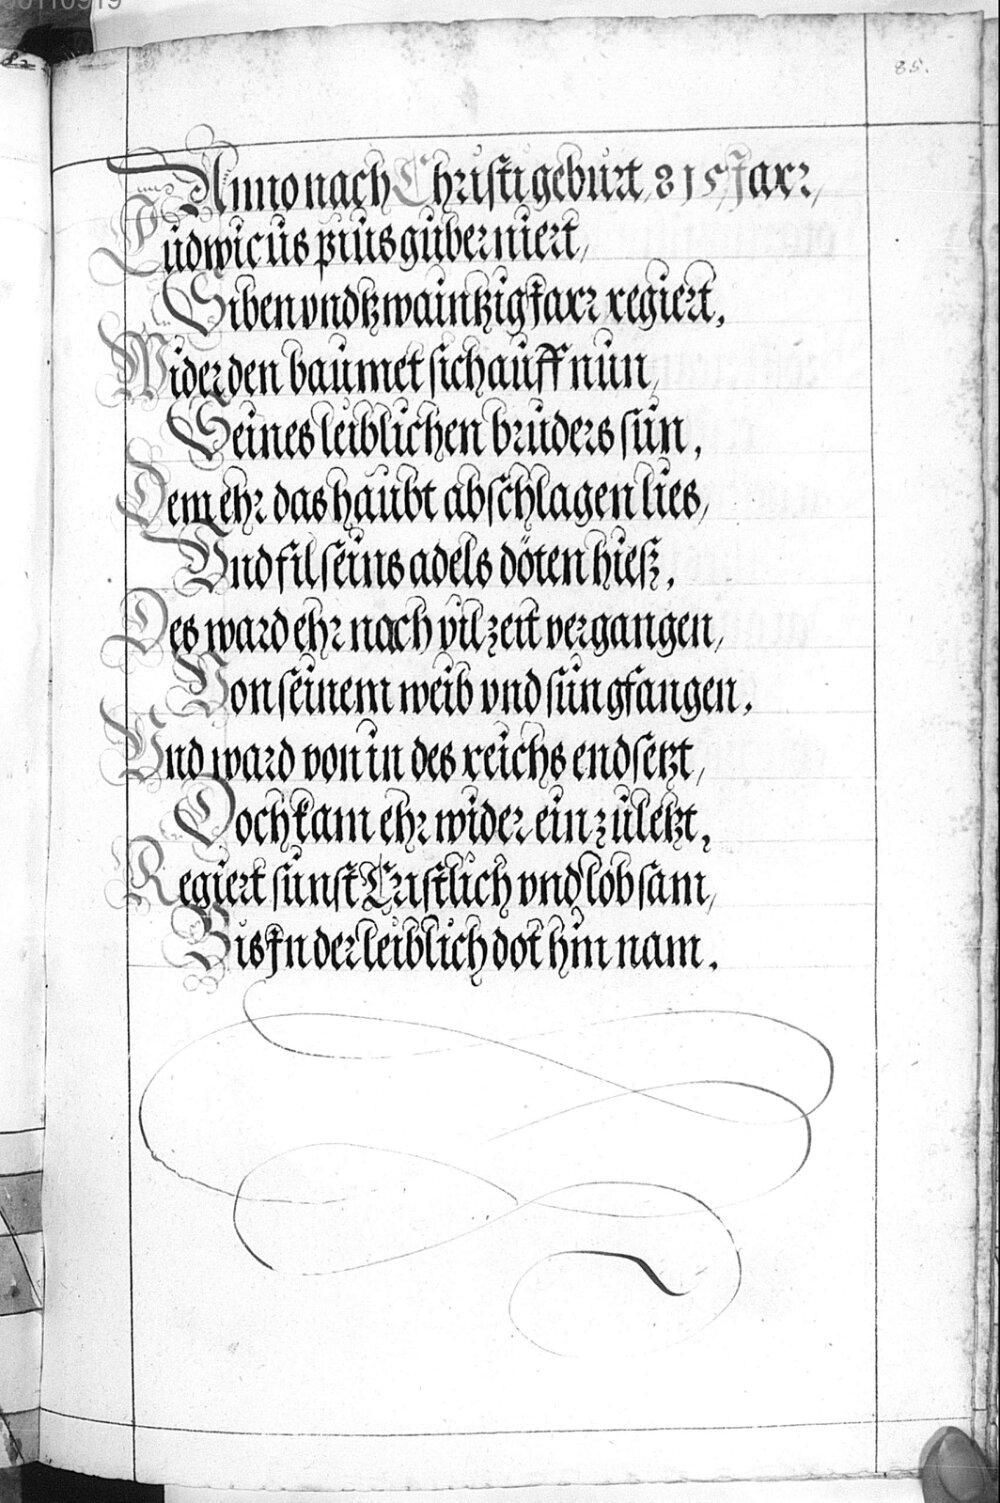 85.
Anno nach Christi geburt, 815, Jarr,
Ludwicus pius guberniert,
Siben vnd tzwaintzig Jarr regiert,
Wider den baumet sich auff nun,
Seines leiblichen bruders sun,
Dem ehr das haubt abschlagen lies,
Vnd fil seins adels döten hiesz,
Des ward ehr nach vil zeit vergangen,
Von seinem weib vnd sün gfangen,
Vnd ward von in des reichs endsetzt,
Doch kam ehr wider ein zuletzt,
Regiert sunst Cristlich vnd lobsam,
Bis Jn der leiblich dot hin nam.